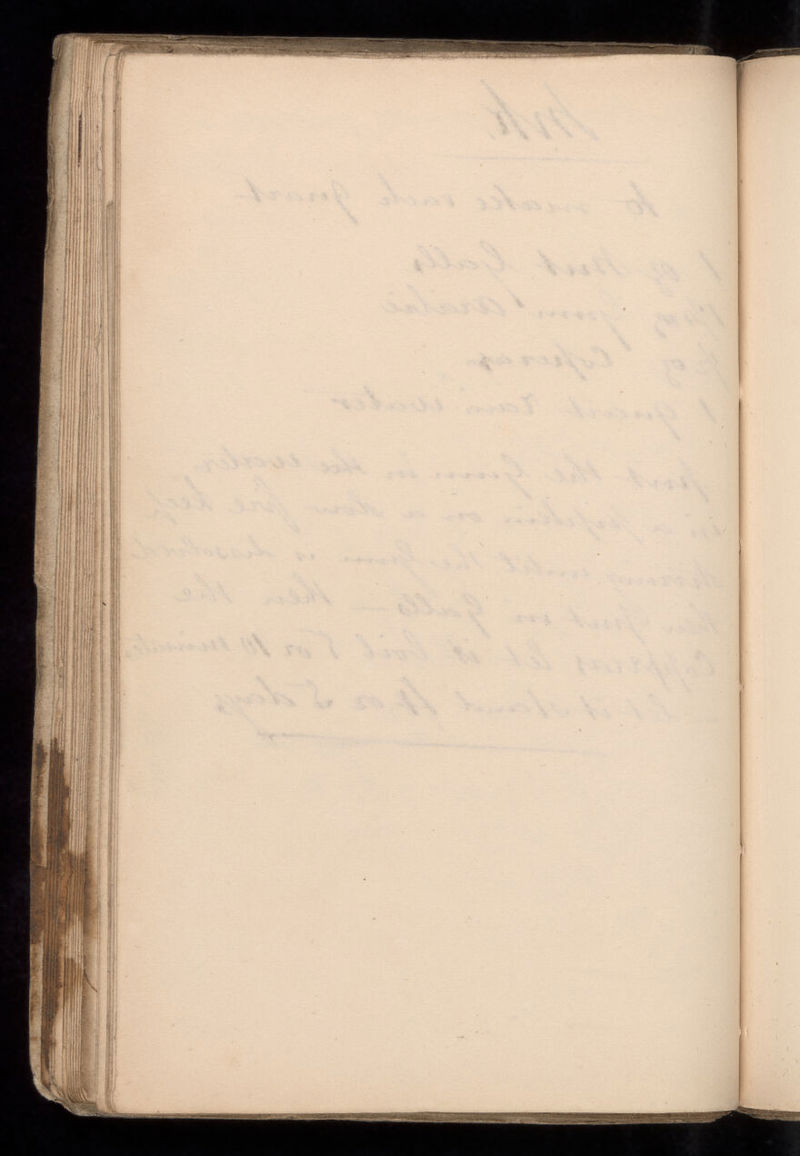 Ink.
to make each Quart
1 oz Nut Galls
oz Gum Arabic
oz Coperas
1 Quart Rain Water
put the Gum in the water,
in a pipkin on a slow fire keep
stirring until the Gum is dissolved
then put in Galls — then the
Copperas let it boil 5 or 10 minutes,
— let it stand 4 or 5 days